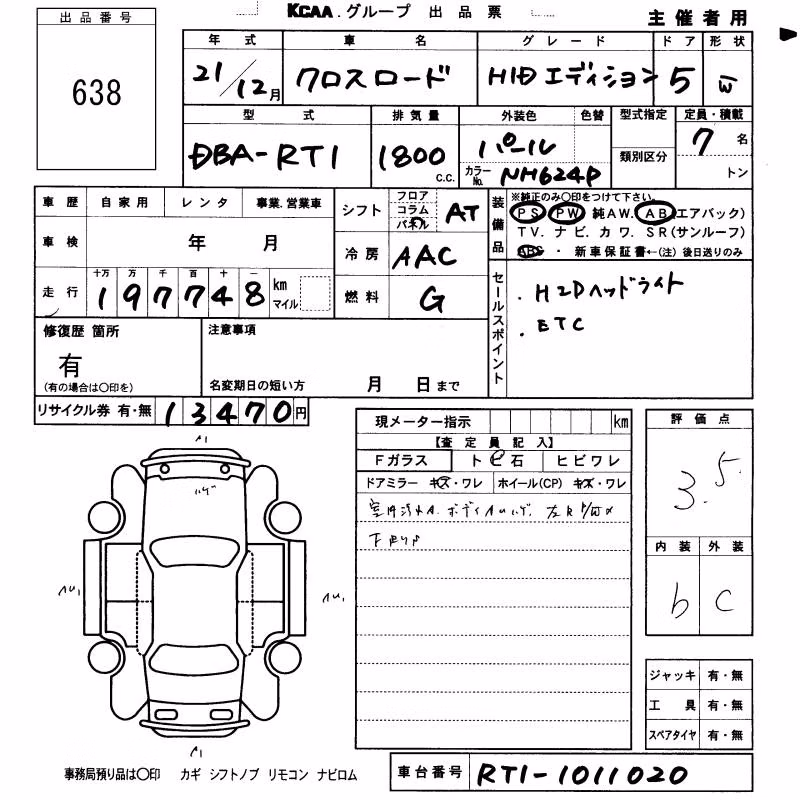 出品番号
638
KCAA.グループ 出品票
主催者用
年式 車名 グレード ドア 形状
21/12月 クロスロード HIDエディション 5
型式 排気量 外装色 色替 型式指定 定員・積載
DBA-RT1 1800 C.C. パール 7名
カラーNo. NH624P 類別区分 トン
車歴 自家用 レンタ 事業.営業車
車検 年 月
走行 十万 万 千 百 十 一
197748 km マイル
シフト フロア コラム パネル AT
冷房 AAC
燃料 G
装備品
※純正のみ〇印をつけて下さい。
PS PW 純AW. AB(エアバック)
TV. ナビ. カワ. SR(サンルーフ)
ABS ・ 新車保証書←(注) 後日送りのみ
セールスポイント
・HIDヘッドライト
・ETC
修復歴 箇所
有
(有の場合は〇印を)
注意事項
名変期日の短い方 月 日まで
リサイクル券 有・無 13470円
現メーター指示 km
【査定員記入】
Fガラス トビ石 ヒビワレ
ドアミラー キズ・ワレ ホイール(CP) キズ・ワレ
評価点
3.5
内装 外装
b C
ハゲ
ジャッキ 有・無
工具 有・無
スペアタイヤ 有・無
事務局預り品は〇印 カギ シフトノブ リモコン ナビロム
車台番号 RT1-1011020